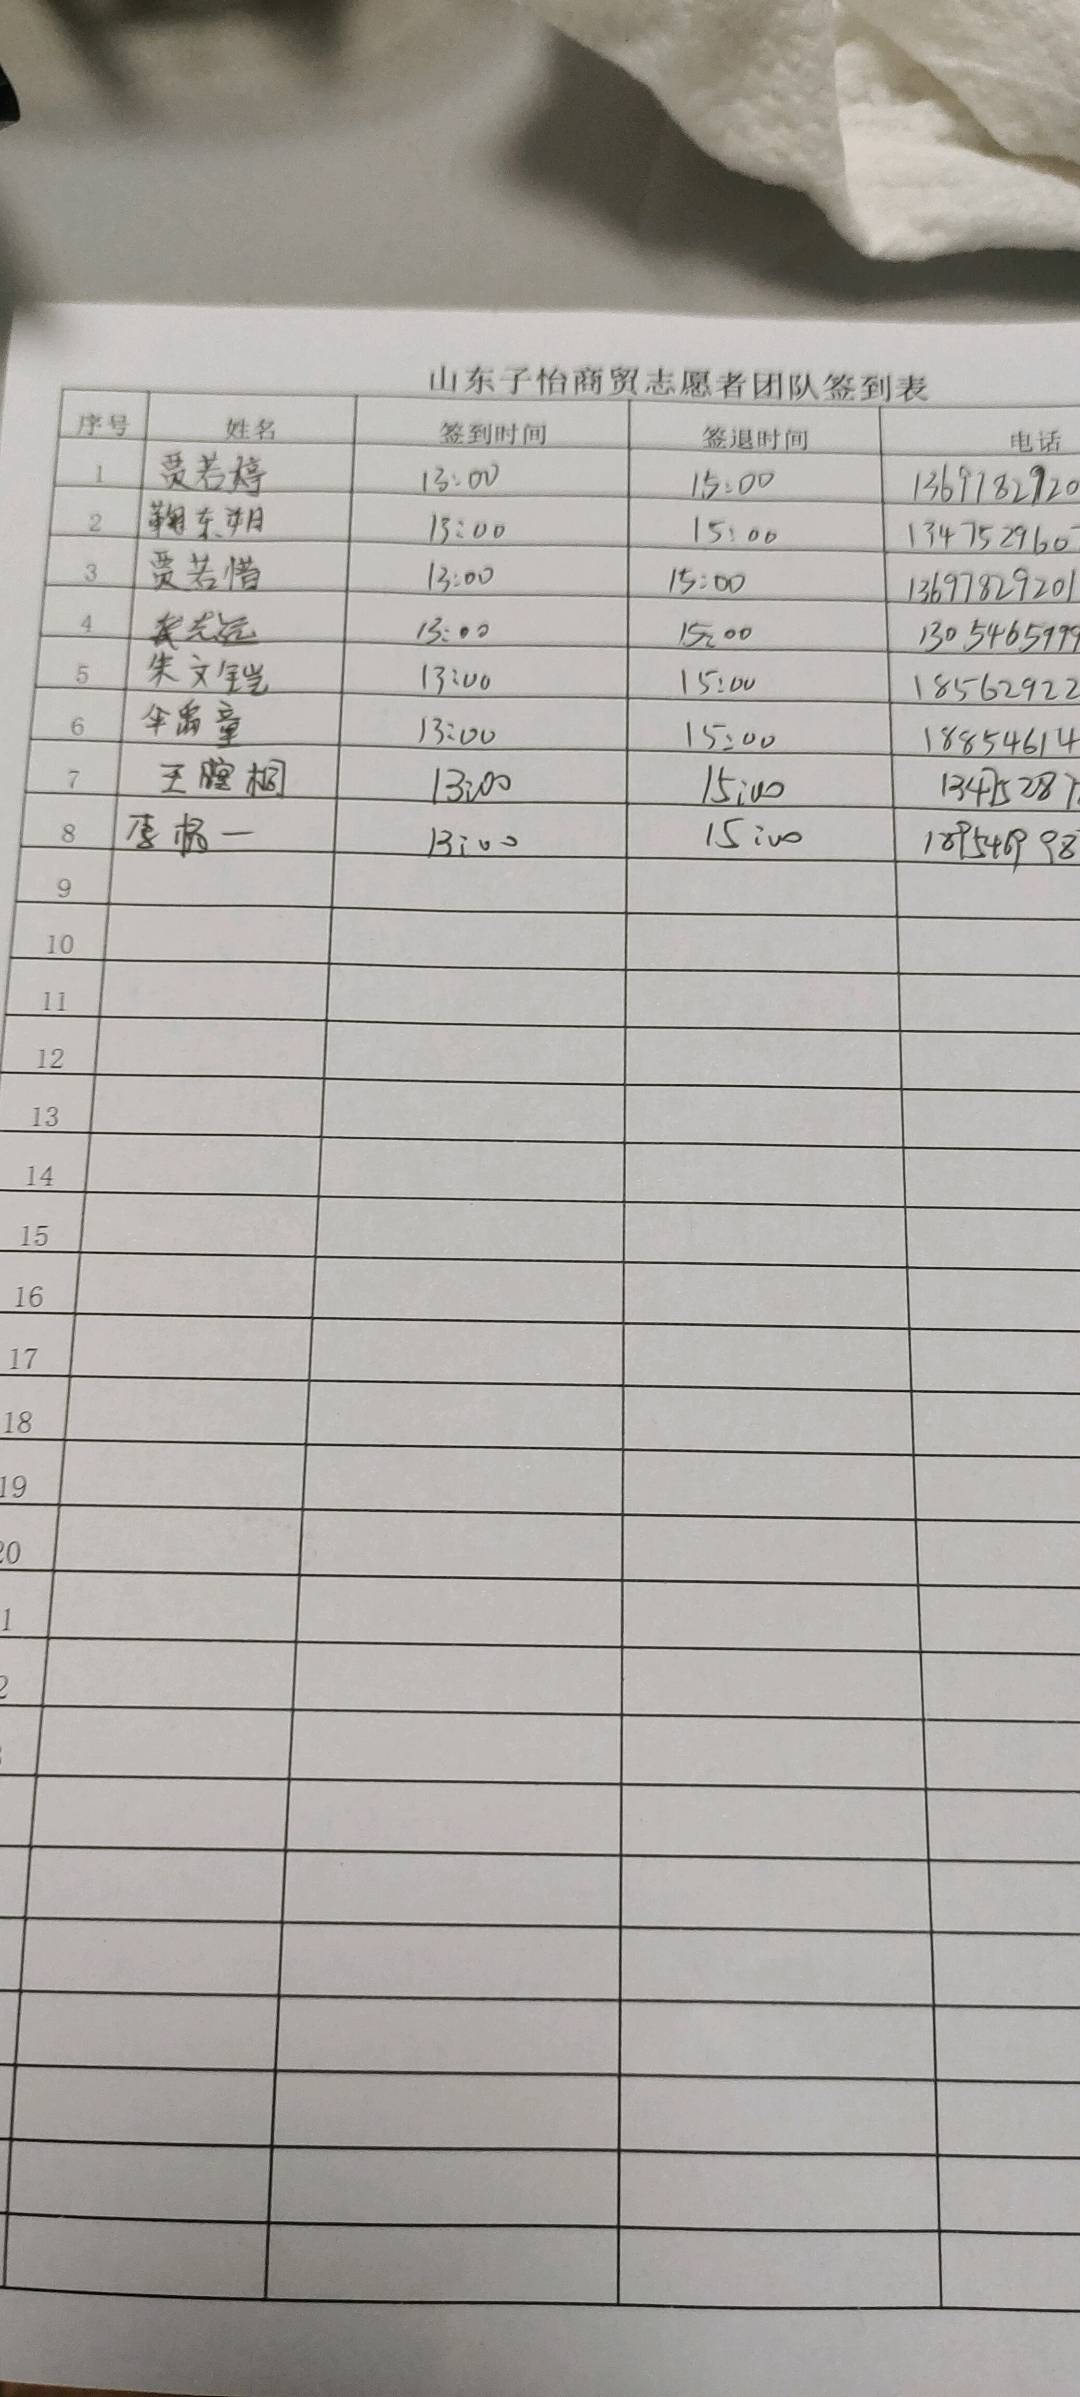 山东子怡商贸志愿者团队签到表
序号 姓名 签到时间 签退时间 电话
1 贾若婷 13:00 15:00 1369782920
2 鞠东玥 13:00 15:00 1347529607
3 贾若惜 13:00 15:00 13697829201
4 13:00 15:00 1305465999
5 朱文 13:00 15:00 18562922
6 伞禹童 13:00 15:00 18854614
7 王 桐 13:00 15:00 13475287
8 李 一 13:00 15:00 1895469 98
9
10
11
12
13
14
15
16
17
18
19
20
1
2